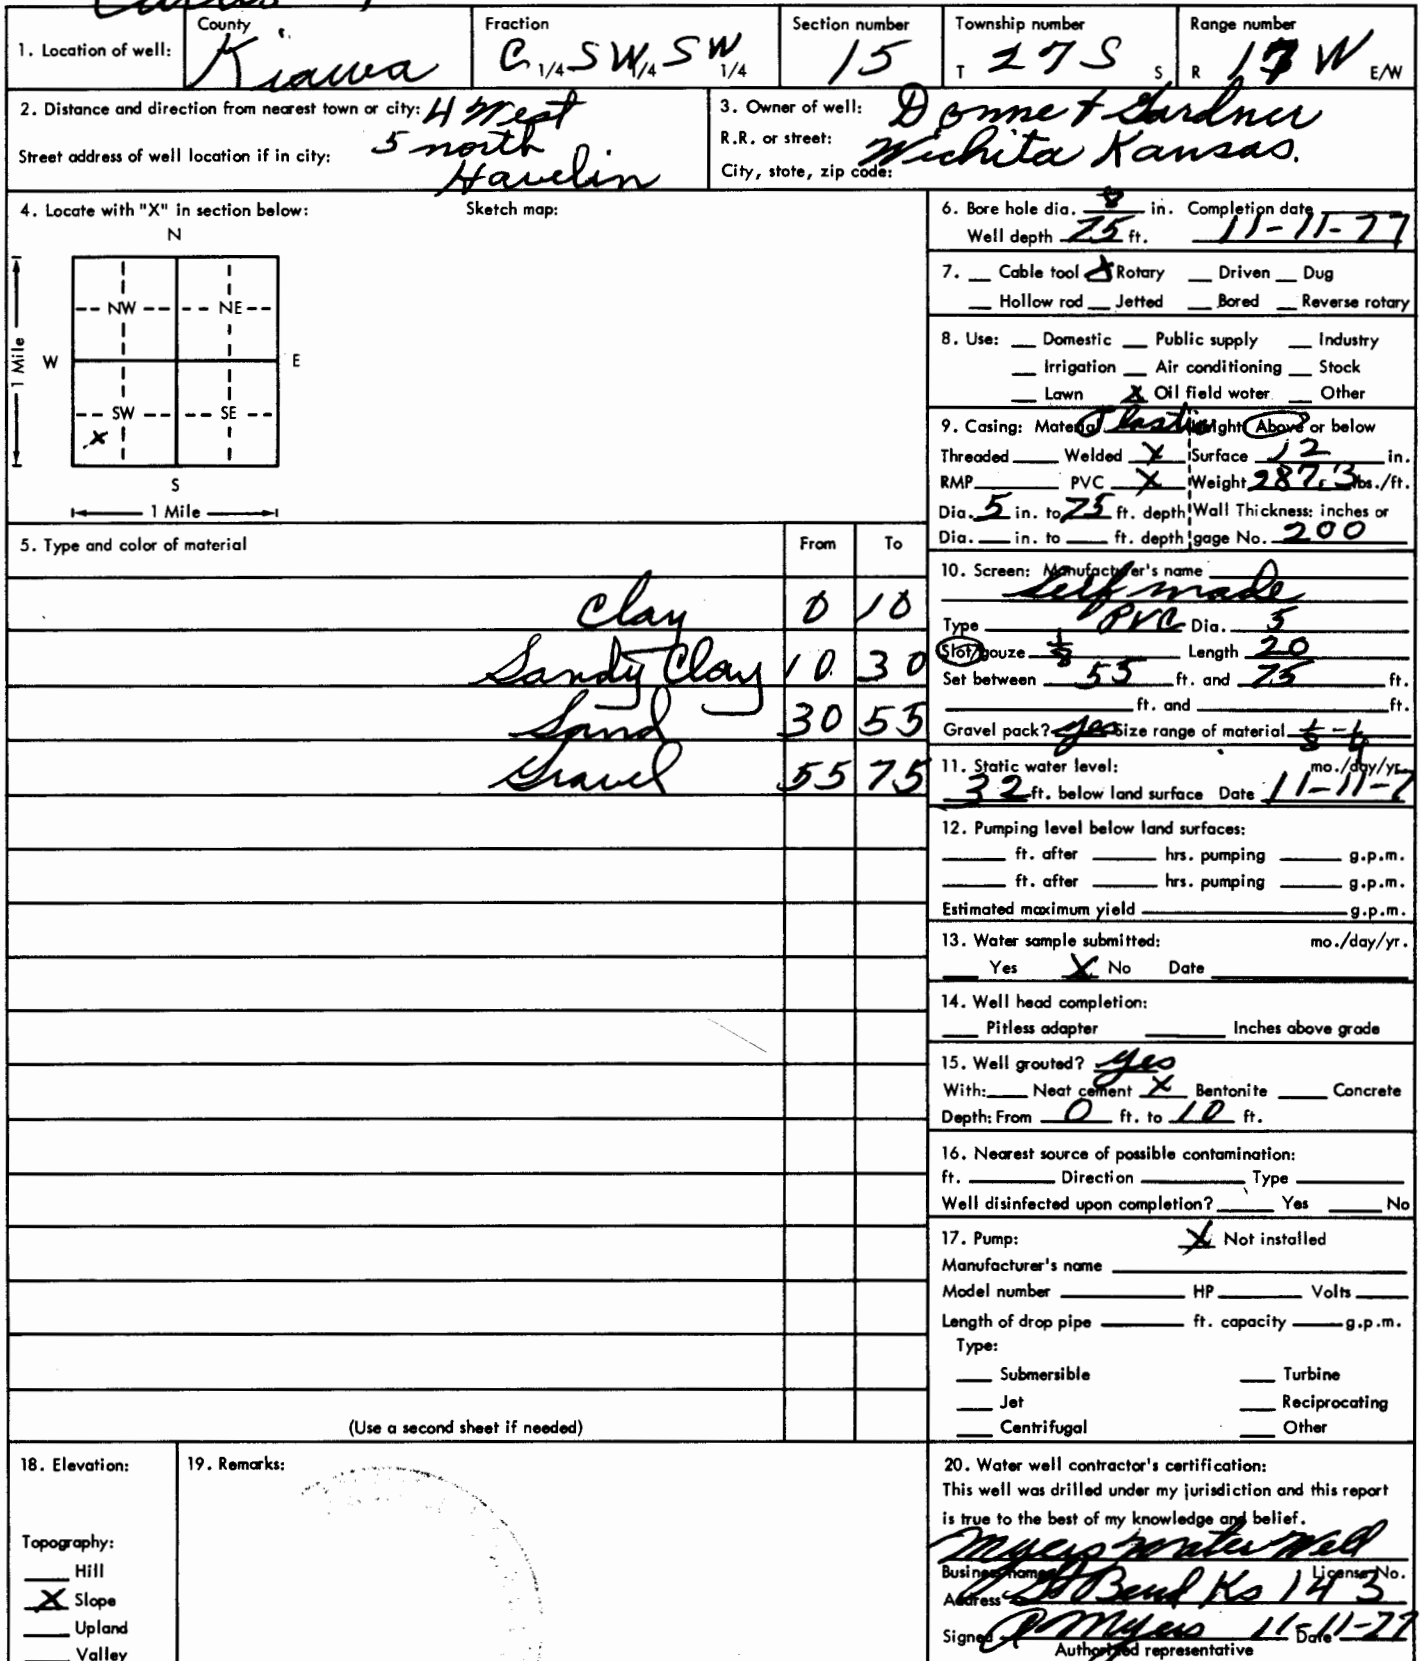 County
Fraction
Section number
Township number
Range number
1. Location of well:
Kiawa
C 1/4 SW 1/4 SW 1/4
15
T 27 S S
R W E/W
2. Distance and direction from nearest town or city: 4 West
5 north
Street address of well location if in city:
Havelin
3. Owner of well: Donne & Gardner
R.R. or street:
Wichita Kansas.
City, state, zip code:
4. Locate with "X" in section below:
Sketch map:
N
NW NE
W E
1 Mile
SW SE
X
S
1 Mile
5. Type and color of material From To
Clay 0 10
Sandy Clay 10 30
Sand 30 55
Gravel 55 75
(Use a second sheet if needed)
6. Bore hole dia. 8 in. Completion date
Well depth 75 ft. 11-11-77
7. Cable tool X Rotary Driven Dug
Hollow rod Jetted Bored Reverse rotary
8. Use: Domestic Public supply Industry
Irrigation Air conditioning Stock
Lawn X Oil field water Other
9. Casing: Material Plastic Height: Above or below
Threaded Welded X Surface 12 in.
RMP PVC X Weight 287.3 lbs./ft.
Dia. 5 in. to 75 ft. depth Wall Thickness: inches or
Dia. in. to ft. depth gage No. 200
10. Screen: Manufacturer's name
self made
Type PVC Dia. 5
Slot/gauze 1/8 Length 20
Set between 55 ft. and 75 ft.
ft. and ft.
Gravel pack? yes Size range of material 1/8 - 1/4
11. Static water level: mo./day/yr.
32 ft. below land surface Date 11-11-7
12. Pumping level below land surfaces:
ft. after hrs. pumping g.p.m.
ft. after hrs. pumping g.p.m.
Estimated maximum yield g.p.m.
13. Water sample submitted: mo./day/yr.
Yes X No Date
14. Well head completion:
Pitless adapter Inches above grade
15. Well grouted? yes
With: Neat cement X Bentonite Concrete
Depth: From 0 ft. to 10 ft.
16. Nearest source of possible contamination:
ft. Direction Type
Well disinfected upon completion? Yes No
17. Pump: X Not installed
Manufacturer's name
Model number HP Volts
Length of drop pipe ft. capacity g.p.m.
Type:
Submersible Turbine
Jet Reciprocating
Centrifugal Other
18. Elevation:
Topography:
Hill
X Slope
Upland
Valley
19. Remarks:
20. Water well contractor's certification:
This well was drilled under my jurisdiction and this report
is true to the best of my knowledge and belief.
Myers water Well
Business name License No.
Address Gt Bend Ks 143
Signed Myers Date 11-11-77
Authorized representative